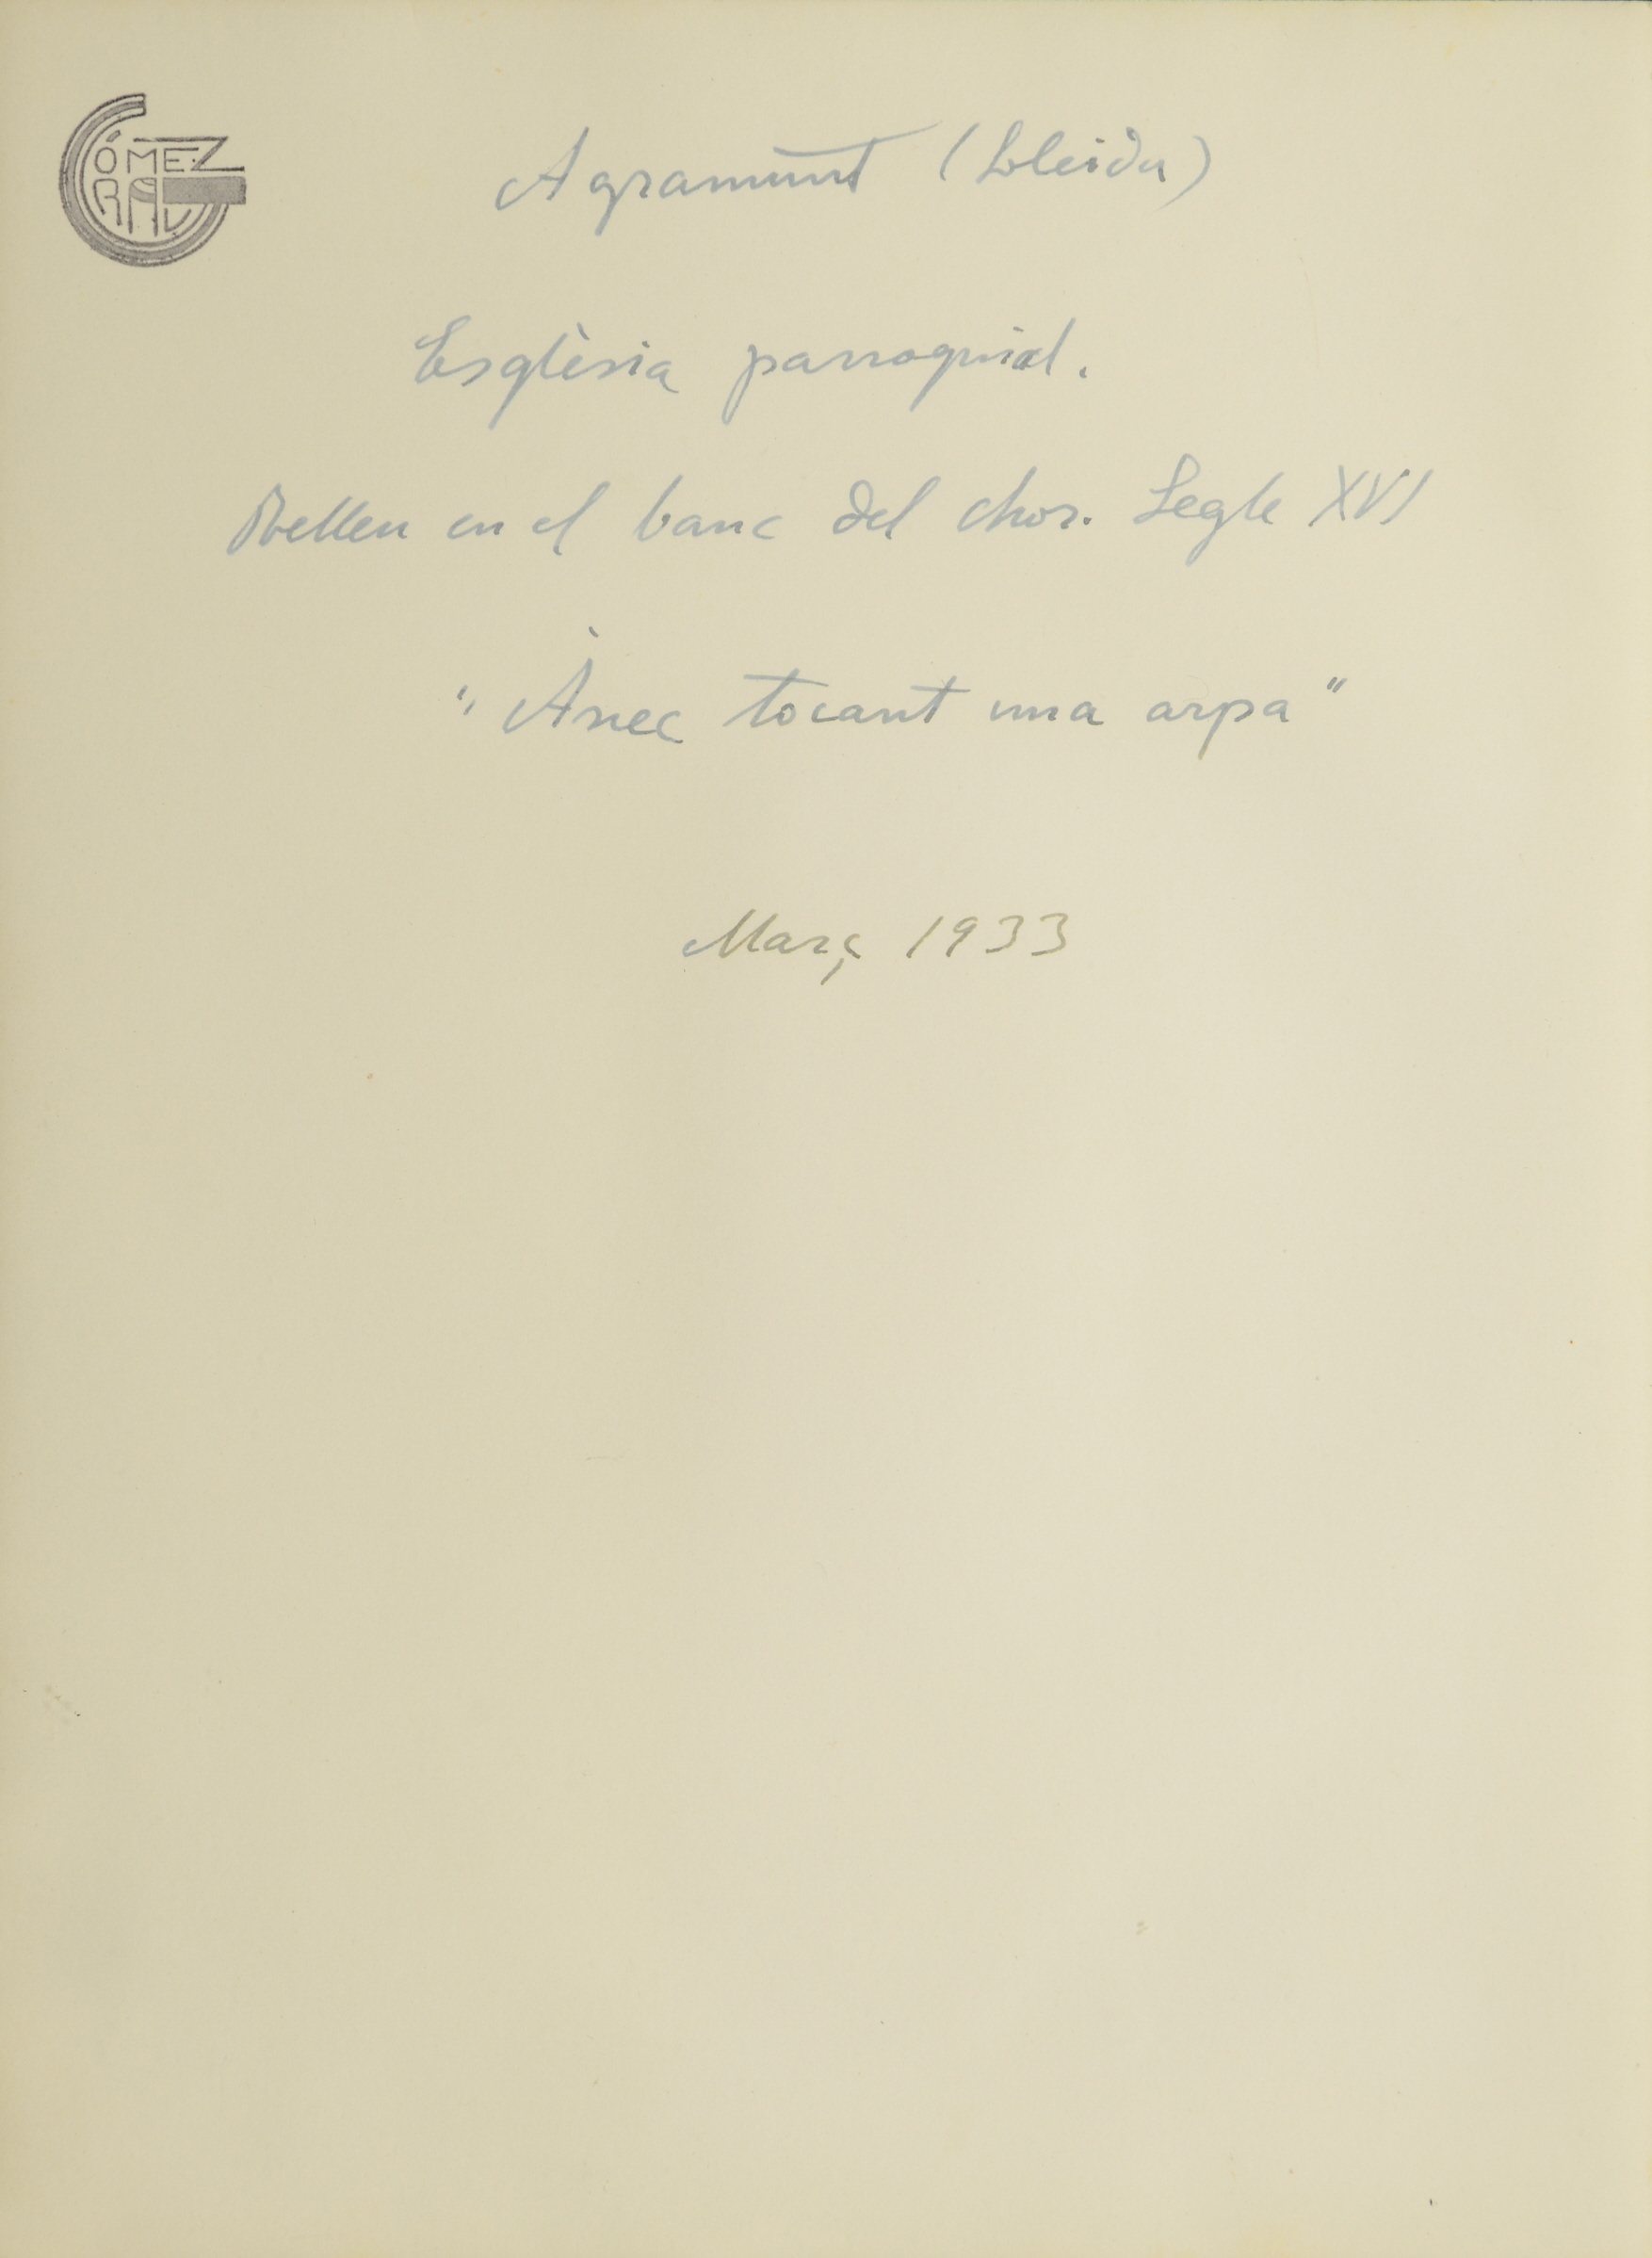 GÓMEZ
GRAU
Agramunt (Lleida)
Esglèsia parroquial.
Relleu en el banc del chor. Segle XVI
"Ànec tocant una arpa"
Març 1933